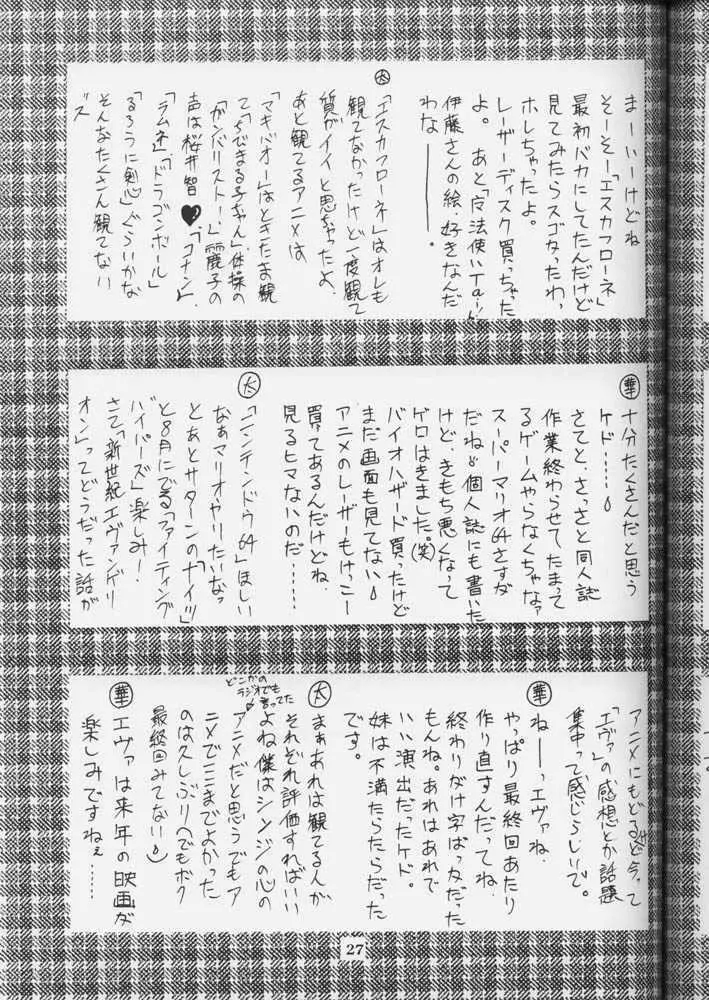 まーいーけどね
そーそー「エスカフローネ」
最初バカにしてたんだけど
見てみたらスゴかったわっ
ホレちゃったよ。
レーザーディスク買っちゃった
よ。あと「魔法使いTai!」
伊藤さんの絵、好きなんだ
わなーーー。
大
「エスカフローネ」はオレも
観てなかったけど一度観て
質がイイと思っちゃったよ、
あと観てるアニメは
「マキバオー」はときたま観
て、「ちびまる子ちゃん」、体操の
「ガンバリスト!」麗子の
声は桜井智♥「コナン」、
「ラムネ」「ドラゴンボール」
「るろうに剣心」ぐらいかな
そんなたくさん観てない
ズ
華
十分たくさんだと思う
ケド……
さてと、さっさと同人誌
作業終わらせてたまって
るゲームやらなくちゃなっ
スーパーマリオ64さすが
だね。個人誌にも書いた
けど、きもち悪くなって
ゲロはきました。(笑)
バイオハザード買ったけど
まだ画面も見てない
アニメのレーザーもけっこー
買ってあるんだけどね、
見るヒマないのだ……
大
「ニンテンドウ64」ほしい
なぁマリオやりたいなっ
とあとサターンの「ナイツ」
と8月にでる「ファイティング
バイパーズ」楽しみ!
さて「新世紀エヴァンゲリ
オン」ってどうだった話が
アニメにもどるけど今って
「エヴァ」の感想とか話題
集中って感じらしいで。
華
ねーーっエヴァね、
やっぱり最終回あたり
作り直すんだってね、
終わりがけ字ばっかだった
もんね。あれはあれで
いい演出だったケド。
妹は不満たらたらだった
です。
大
まぁあれは観てる人が
それぞれ評価すればいい
よね僕はシンジの心の
どこかの
ラジオでも
言ってた
アニメだと思うでもア
ニメでここまでよかった
のは久しぶりへでもボク
最終回みてない
華
エヴァは来年の映画が
楽しみですねぇ……
27